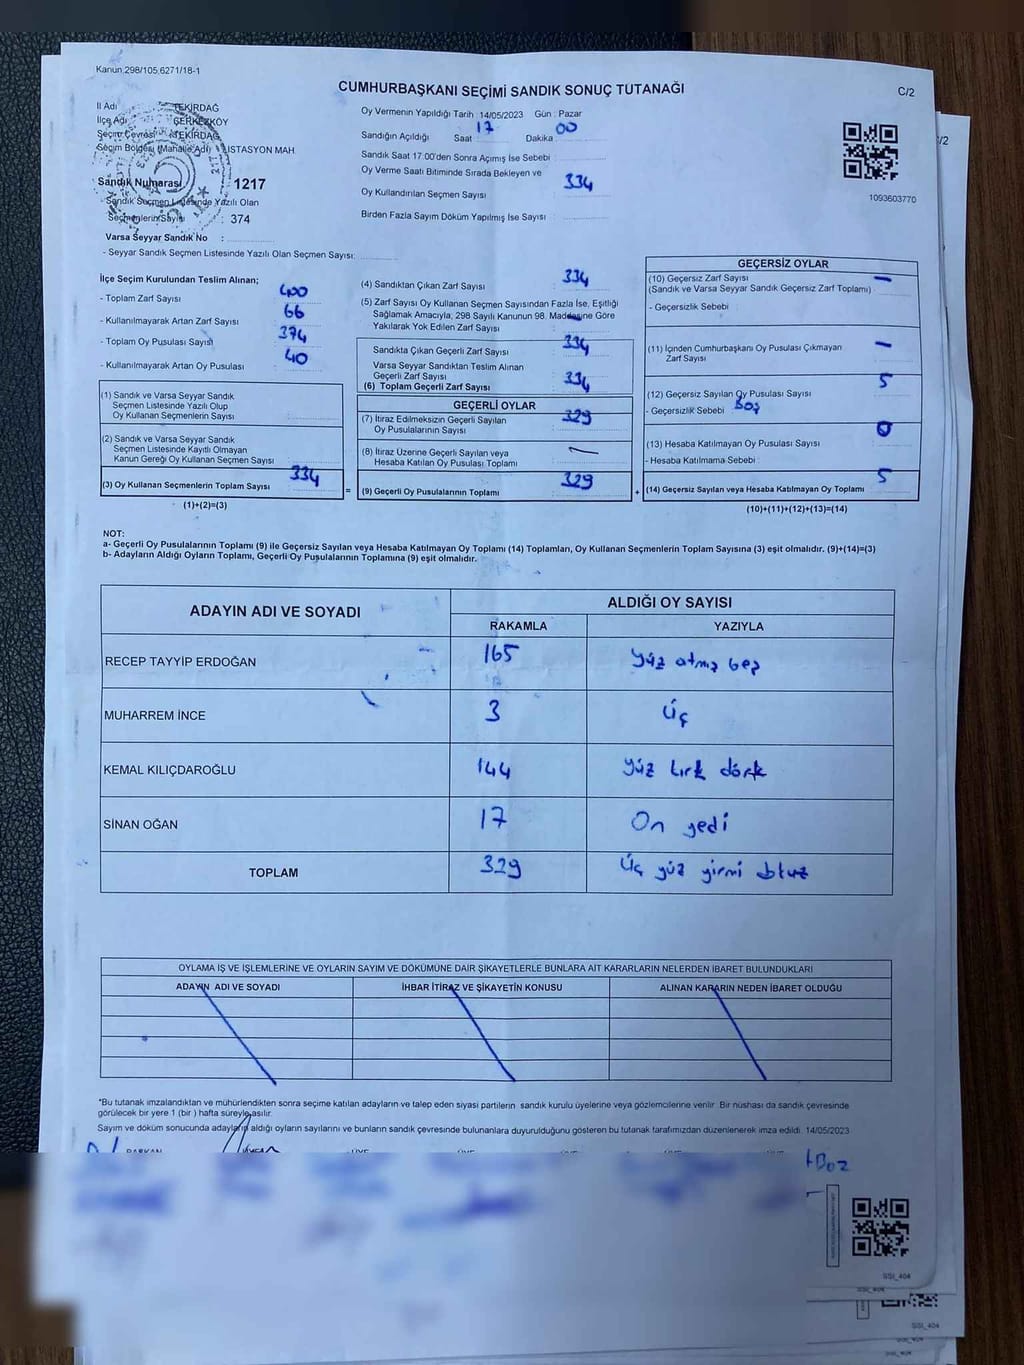 Kanun 298/105,6271/18-1
CUMHURBAŞKANI SEÇİMİ SANDIK SONUÇ TUTANAĞI
C/2
İl Adı : TEKİRDAĞ
İlçe Adı : ÇERKEZKÖY
Seçim Çevresi : TEKİRDAĞ
Seçim Bölgesi (Mahalle Adı) İSTASYON MAH.
Sandık Numarası : 1217
Sandık Seçmen Listesinde Yazılı Olan
Seçmenlerin Sayısı : 374
Varsa Seyyar Sandık No :
- Seyyar Sandık Seçmen Listesinde Yazılı Olan Seçmen Sayısı:
Oy Vermenin Yapıldığı Tarih 14/05/2023 Gün : Pazar
Sandığın Açıldığı Saat 17 Dakika 00
Sandık Saat 17:00'den Sonra Açımış İse Sebebi
Oy Verme Saati Bitiminde Sırada Bekleyen ve
Oy Kullandırılan Seçmen Sayısı 334
Birden Fazla Sayım Döküm Yapılmış İse Sayısı :
1093603770
İlçe Seçim Kurulundan Teslim Alınan;
- Toplam Zarf Sayısı 400
- Kullanılmayarak Artan Zarf Sayısı 66
- Toplam Oy Pusulası Sayısı 374
- Kullanılmayarak Artan Oy Pusulası 40
(1) Sandık ve Varsa Seyyar Sandık
Seçmen Listesinde Yazılı Olup
Oy Kullanan Seçmenlerin Sayısı
(2) Sandık ve Varsa Seyyar Sandık
Seçmen Listesinde Kayıtlı Olmayan
Kanun Gereği Oy Kullanan Seçmen Sayısı
(3) Oy Kullanan Seçmenlerin Toplam Sayısı 334
(1)+(2)=(3)
=
(4) Sandıktan Çıkan Zarf Sayısı 334
(5) Zarf Sayısı Oy Kullanan Seçmen Sayısından Fazla İse, Eşitliği
Sağlamak Amacıyla, 298 Sayılı Kanunun 98. Maddesine Göre
Yakılarak Yok Edilen Zarf Sayısı
Sandıkta Çıkan Geçerli Zarf Sayısı 334
Varsa Seyyar Sandıktan Teslim Alınan
Geçerli Zarf Sayısı
(6) Toplam Geçerli Zarf Sayısı 334
GEÇERLİ OYLAR
(7) İtiraz Edilmeksizin Geçerli Sayılan
Oy Pusulalarının Sayısı 329
(8) İtiraz Üzerine Geçerli Sayılan veya
Hesaba Katılan Oy Pusulası Toplamı —
(9) Geçerli Oy Pusulalarının Toplamı 329
+
GEÇERSİZ OYLAR
(10) Geçersiz Zarf Sayısı —
(Sandık ve Varsa Seyyar Sandık Geçersiz Zarf Toplamı)
- Geçersizlik Sebebi :
(11) İçinden Cumhurbaşkanı Oy Pusulası Çıkmayan —
Zarf Sayısı
(12) Geçersiz Sayılan Oy Pusulası Sayısı 5
- Geçersizlik Sebebi Boş
(13) Hesaba Katılmayan Oy Pusulası Sayısı 0
- Hesaba Katılmama Sebebi :
(14) Geçersiz Sayılan veya Hesaba Katılmayan Oy Toplamı 5
(10)+(11)+(12)+(13)=(14)
NOT:
a- Geçerli Oy Pusulalarının Toplamı (9) ile Geçersiz Sayılan veya Hesaba Katılmayan Oy Toplamı (14) Toplamları, Oy Kullanan Seçmenlerin Toplam Sayısına (3) eşit olmalıdır. (9)+(14)=(3)
b- Adayların Aldığı Oyların Toplamı, Geçerli Oy Pusulalarının Toplamına (9) eşit olmalıdır.
ADAYIN ADI VE SOYADI ALDIĞI OY SAYISI
RAKAMLA YAZIYLA
RECEP TAYYİP ERDOĞAN 165 Yüz atmış beş
MUHARREM İNCE 3 üç
KEMAL KILIÇDAROĞLU 144 yüz kırk dört
SİNAN OĞAN 17 On yedi
TOPLAM 329 Üç yüz yirmi dokuz
OYLAMA İŞ VE İŞLEMLERİNE VE OYLARIN SAYIM VE DÖKÜMÜNE DAİR ŞİKAYETLERLE BUNLARA AİT KARARLARIN NELERDEN İBARET BULUNDUKLARI
ADAYIN ADI VE SOYADI İHBAR İTİRAZ VE ŞİKAYETİN KONUSU ALINAN KARARIN NEDEN İBARET OLDUĞU
*Bu tutanak imzalandıktan ve mühürlendikten sonra seçime katılan adayların ve talep eden siyasi partilerin sandık kurulu üyelerine veya gözlemcilerine verilir. Bir nüshası da sandık çevresinde
görülecek bir yere 1 (bir ) hafta süreyle asılır.
Sayım ve döküm sonucunda adayların aldığı oyların sayılarını ve bunların sandık çevresinde bulunanlara duyurulduğunu gösteren bu tutanak tarafımızdan düzenlenerek imza edildi. 14/05/2023
SSİ_404